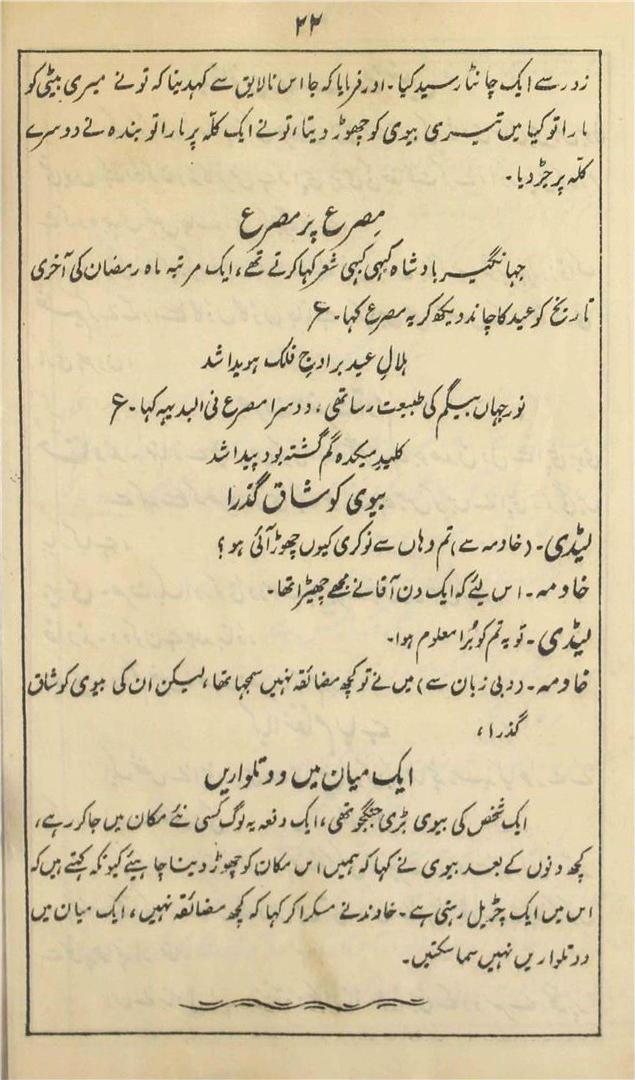 ۲۲
زور سے ایک چانٹا رسید کیا۔ اور فرمایا کہ جا اس نالایق سے کہدینا کہ تو نے میری بیٹی کو
مارا تو کیا میں تیری بیوی کو چھوڑ دیتا، تو نے ایک کلّہ پر مارا تو بندہ نے دوسرے
کلّہ پر جڑ دیا۔
مصرع پر مصرع
جہانگیر بادشاہ کبھی کبھی شعر کہا کرتے تھے، ایک مرتبہ ماہ رمضان کی آخری
تاریخ کو عید کا چاند دیکھ کر یہ مصرع کہا۔ ؏
ہلالِ عید بر اوجِ فلک ہویدا شد
نورجہاں بیگم کی طبیعت رسا تھی، دوسرا مصرع فی البدیہہ کہا۔ ؏
کلیدِ میکدہ گم گشتہ بود پیدا شد
بیوی کو شاق گذرا
لیڈی۔ (خادمہ سے) تم وہاں سے نوکری کیوں چھوڑ آئی ہو؟
خادمہ۔ اس لئے کہ ایک دن آقا نے مجھے چھیڑا تھا۔
لیڈی۔ تو یہ تم کو بُرا معلوم ہوا۔
خادمہ۔ (دبی زبان سے) میں نے تو کچھ مضائقہ نہیں سمجہا تھا، لیکن ان کی بیوی کو شاق
گذرا،
ایک میان میں دو تلواریں
ایک شخص کی بیوی بڑی جنگجو تھی، ایک دفعہ یہ لوگ کسی نئے مکان میں جا کر رہے،
کچھ دنوں کے بعد بیوی نے کہا کہ ہمیں اس مکان کو چھوڑ دینا چاہیئے کیونکہ کہتے ہیں کہ
اس میں ایک چڑیل رہتی ہے۔ خاوند نے مسکرا کر کہا کہ کچھ مضائقہ نہیں، ایک میان میں
دو تلواریں نہیں سما سکتیں۔